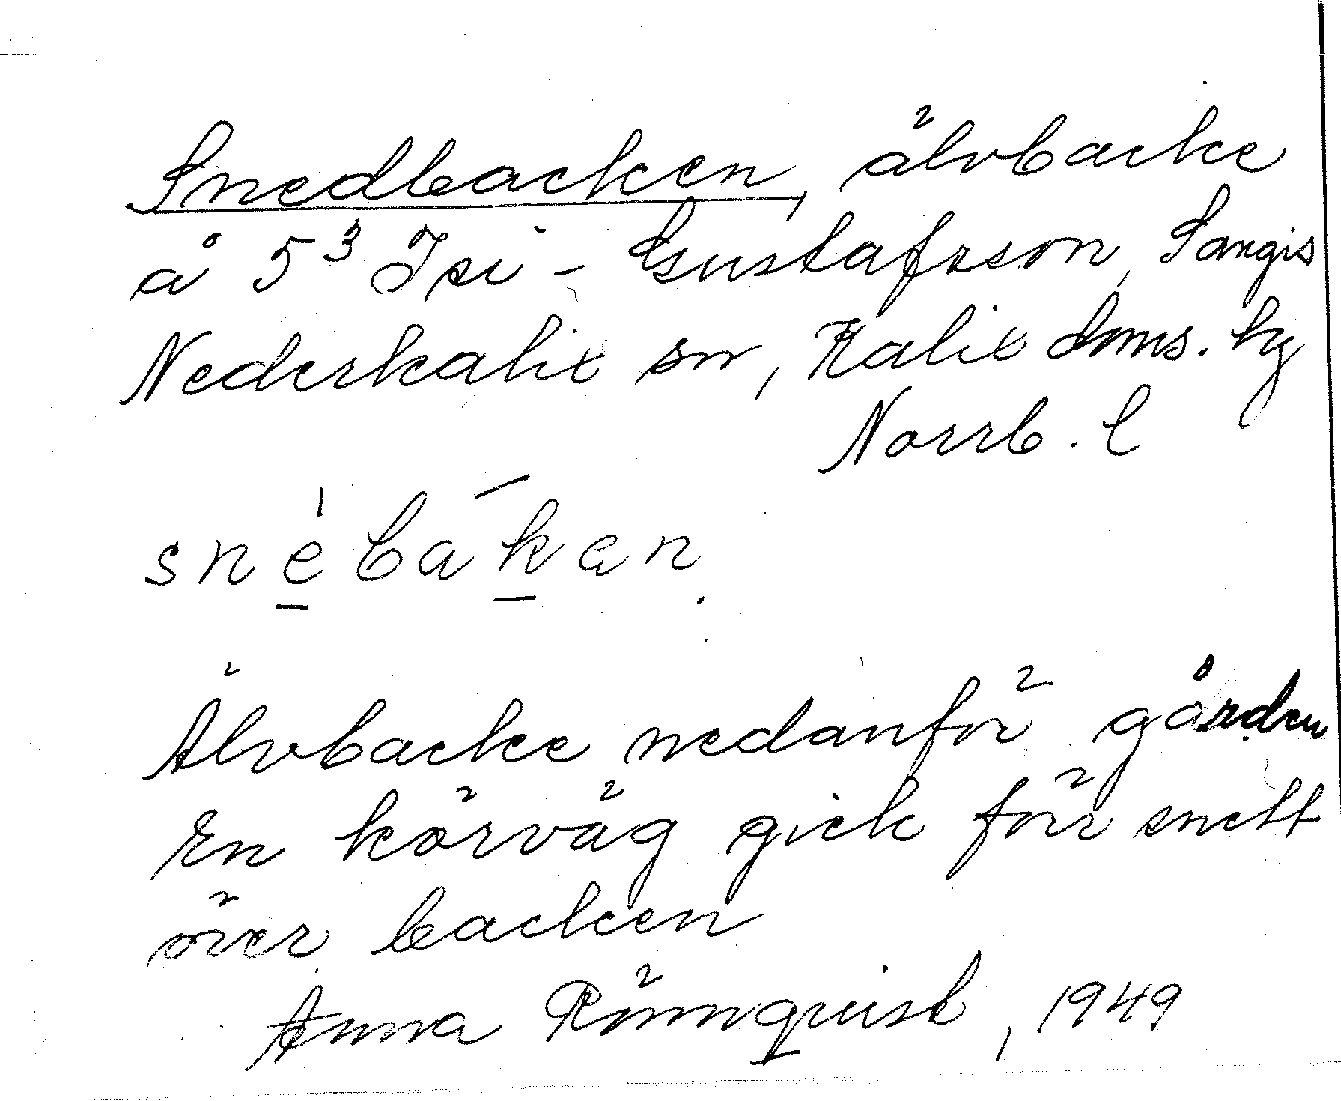 Snedbacken, älvbacke
å 5³ Isi - Gustafsson, Sangis
Nederkalix sn, Kalix doms. hg
Norrb. l
snèbákan.
Älvbacke nedanför gården
En körväg gick förr snett
över backen
Anna Rönnquist, 1949